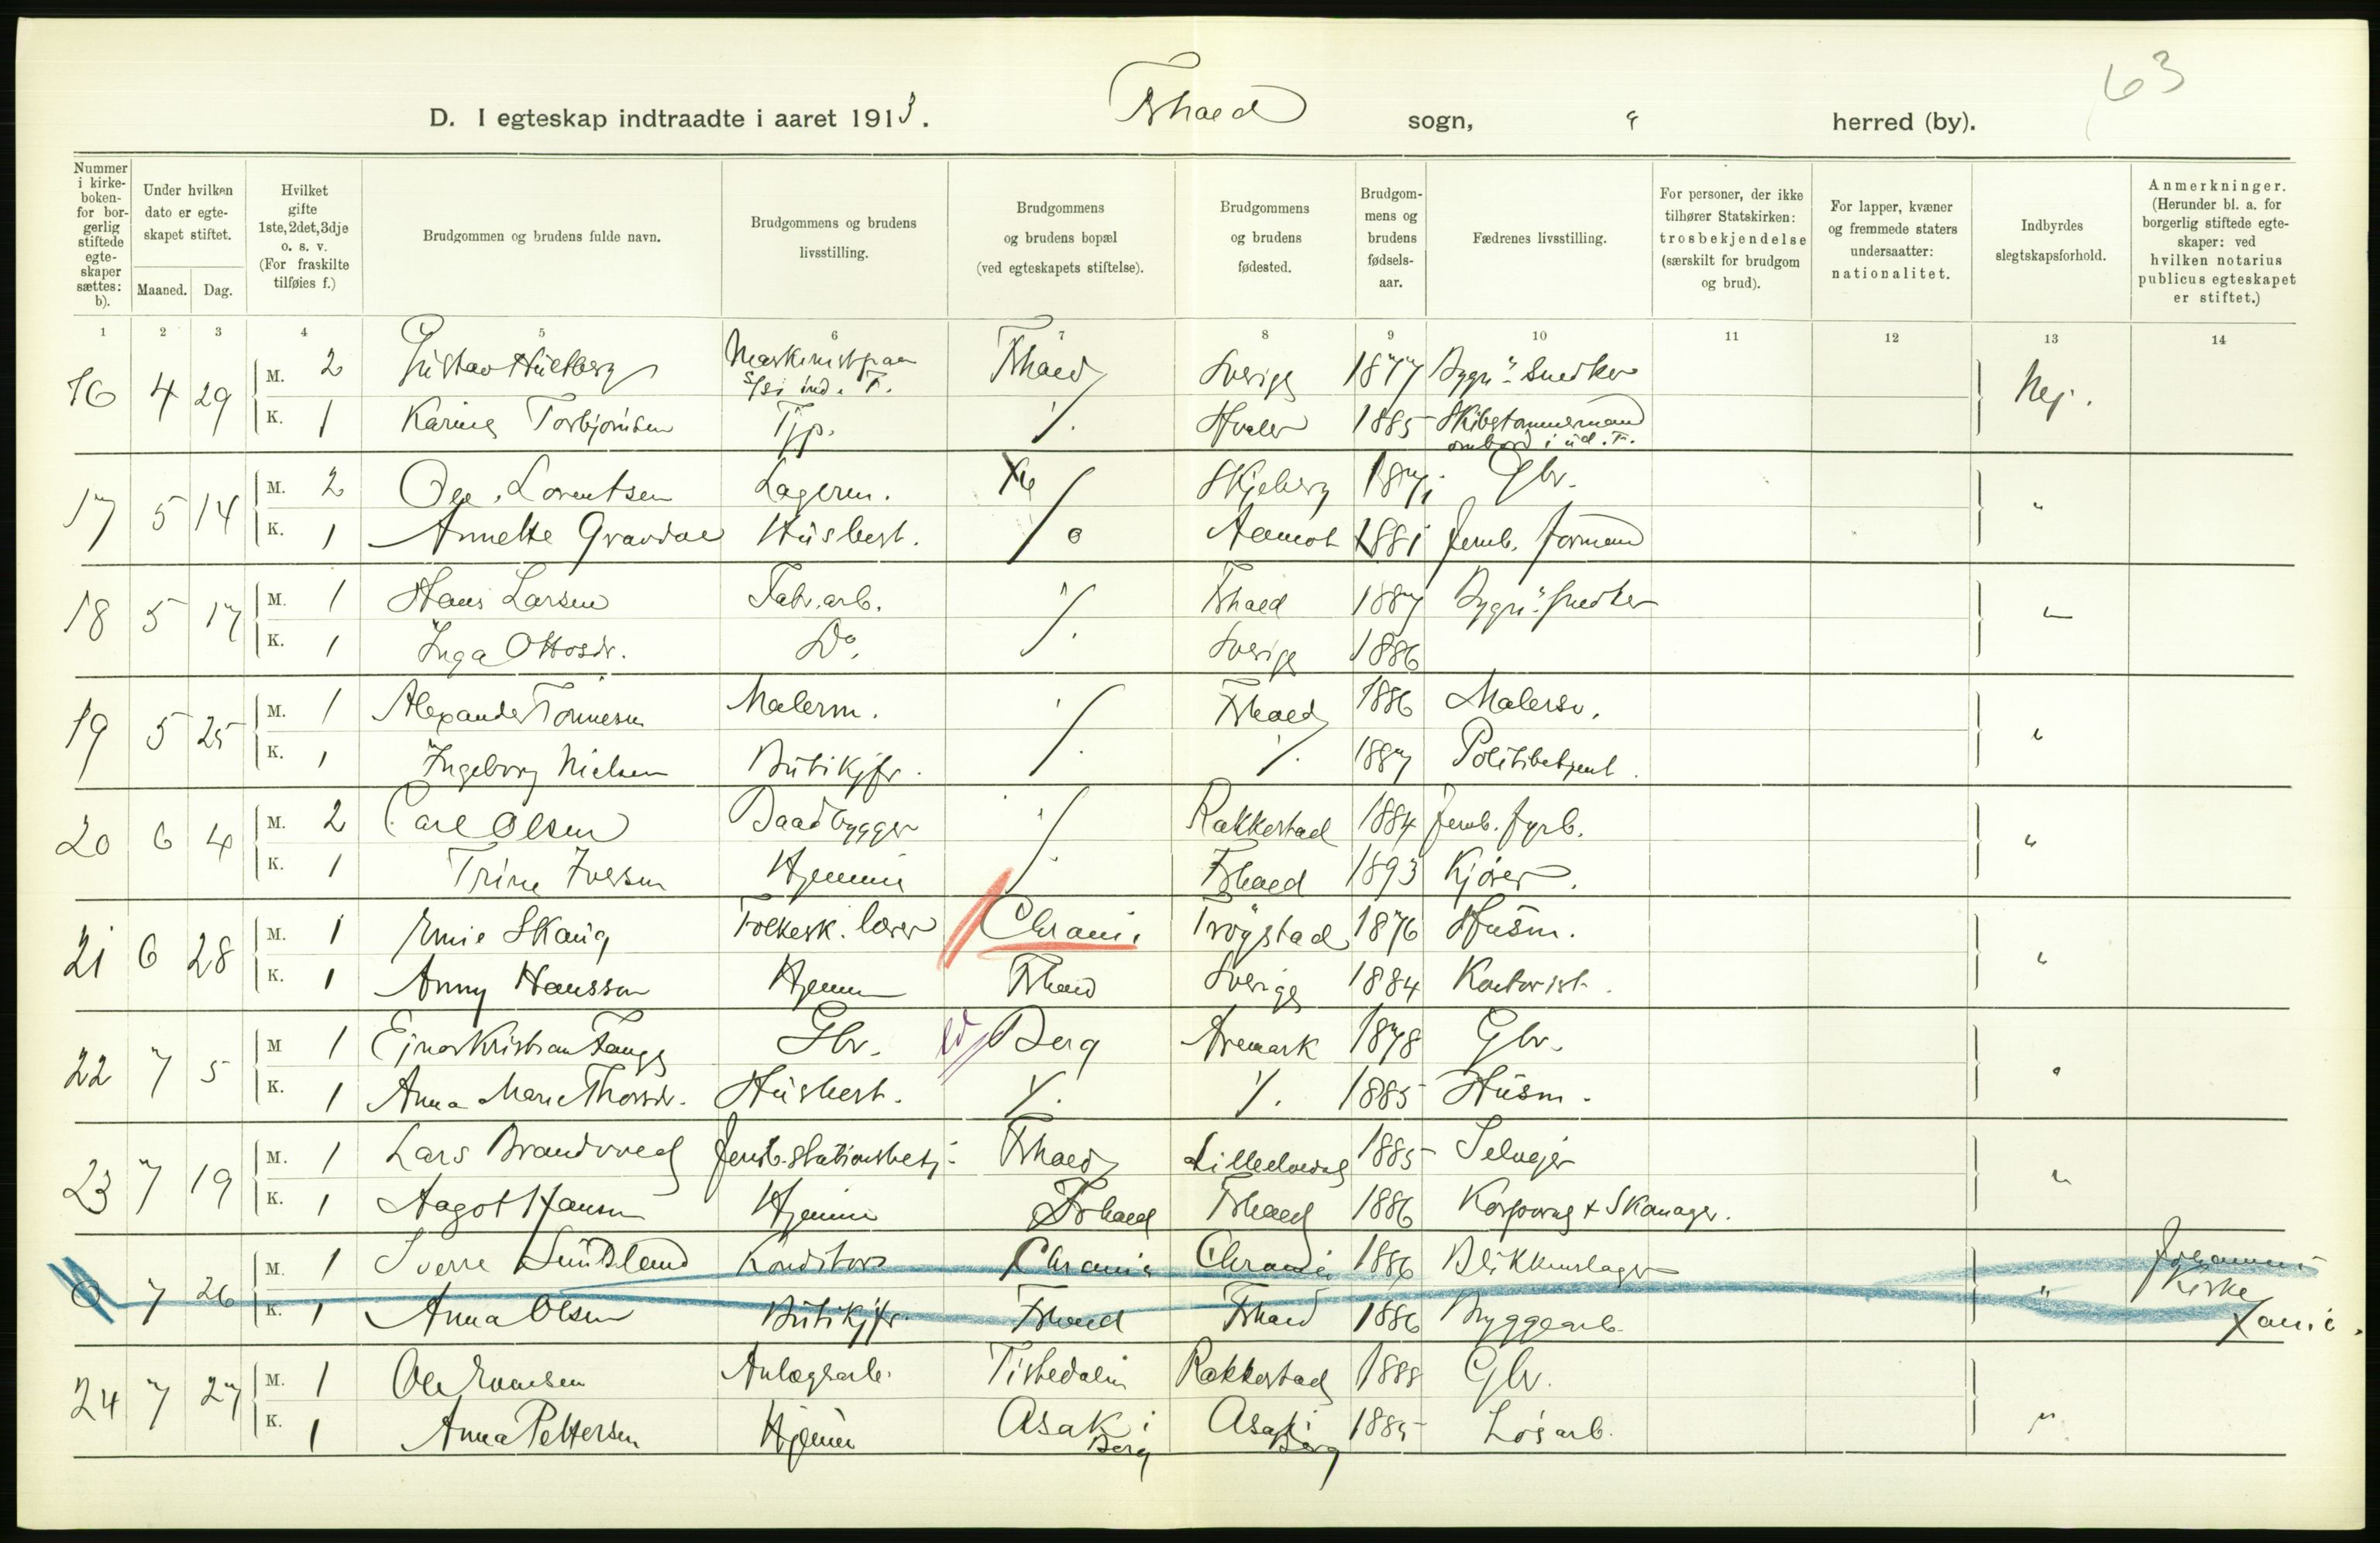 63
D. I egteskap indtraadte i aaret 1913. Fhald sogn, " herred (by).
Nummer i kirkeboken- for borgerlig stiftede egteskaper sættes: b).
Under hvilken dato er egteskapet stiftet.
Maaned. Dag.
Hvilket gifte 1ste, 2det, 3dje o. s. v. (For fraskilte tilføies f.)
Brudgommen og brudens fulde navn.
Brudgommens og brudens livsstilling.
Brudgommens og brudens bopæl (ved egteskapets stiftelse).
Brudgommens og brudens fødested.
Brudgommens og brudens fødselsaar.
Fædrenes livsstilling.
For personer, der ikke tilhører Statskirken: trosbekjendelse (særskilt for brudgom og brud).
For lapper, kvæner og fremmede staters undersaatter: nationalitet.
Indbyrdes slegtskapsforhold.
Anmerkninger. (Herunder bl. a. for borgerlig stiftede egteskaper: ved hvilken notarius publicus egteskapet er stiftet.)
1 2 3 4 5 6 7 8 9 10 11 12 13 14
16 4 29 M. 2 Gustav Hultberg Maskinist paa S/S i ind. F. Fhald Sverige 1877 Bygn. Snedker Nej.
K. 1 Karine Torbjørnsen Tjp. ./. Hvaler 1885 Skibstømmermand ombord i ud. F.
17 5 14 M. 2 Ole Lorentsen Lagerm. ./. Skjeberg 1871 Gbr. "
K. 1 Annette Gravdal Husbest. Aamot 1881 Jernb. formand
18 5 17 M. 1 Hans Larsen Fabr. arb. ./. Fhald 1887 Bygn. Snedker "
K. 1 Inga Ottosdr. Do. Sverige 1886
19 5 25 M. 1 Alexander Tønnesen Malerm. ./. Fhald 1886 Malersv. "
K. 1 Ingeborg Nielsen Butikjfr. ./. 1887 Politibetjent.
20 6 4 M. 2 Carl Olsen Baadbygger ./. Rakkestad 1884 Jernb. fyrb. "
K. 1 Trine Iversen Hjemme Fhald 1893 Kjører.
21 6 28 M. 1 Skaug Folkesk. lærer Chrania Trøgstad 1876 Husm. "
K. 1 Anny Hansson Hjemme Fhald Sverige 1884 Kontorist.
22 7 5 M 1 Ejnar Kristian Tange Gbr. Berg Aremark 1878 Gbr. "
K. 1 Anna Marie Thorsdr. Husbest. ./. ./. 1885 Husm.
23 7 19 M. 1 Lars Brandvold Jernb. stationsbetj. Fhald Lilleelvedal 1885 Selvejer "
K. 1 Aagot Hansen Hjemme Fhald Fhald 1886 Korporal & Skomager.
0 7 26 M. 1 Sverre Sundsland Konditor Chrania Chrania 1886 Blikkenslager " Johannes Kirke Xania.
K. 1 Anna Olsen Butikjfr. Fhald Fhald 1886 Bryggearb.
24 7 27 M. 1 Ole Evensen Anlægsarb. Tistedalen Rakkestad 1888 Gbr. "
K. 1 Anna Pettersen Hjemme Asak i Berg Asak i Berg 1885 Løsarb.